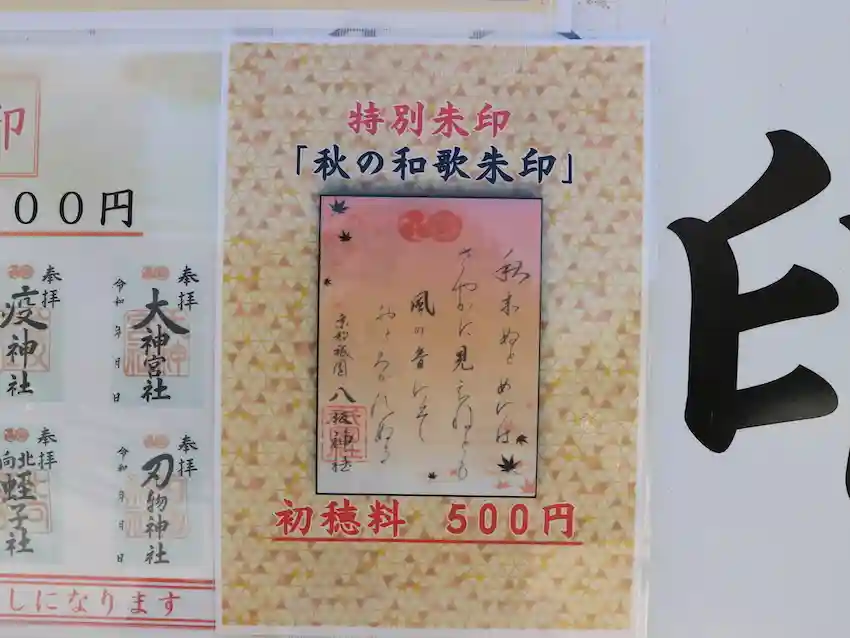 特別朱印
「秋の和歌朱印」
秋来ぬとめには
さやかに見えねども
風の音にそ
おとろかれぬる
京都祇園
八坂神社
初穂料 500円
印
00円
奉拝
疫神社
奉拝
大神宮社
令和 年 月 日
奉拝
北向蛭子社
奉拝
刃物神社
令和 年 月 日
しになります
印